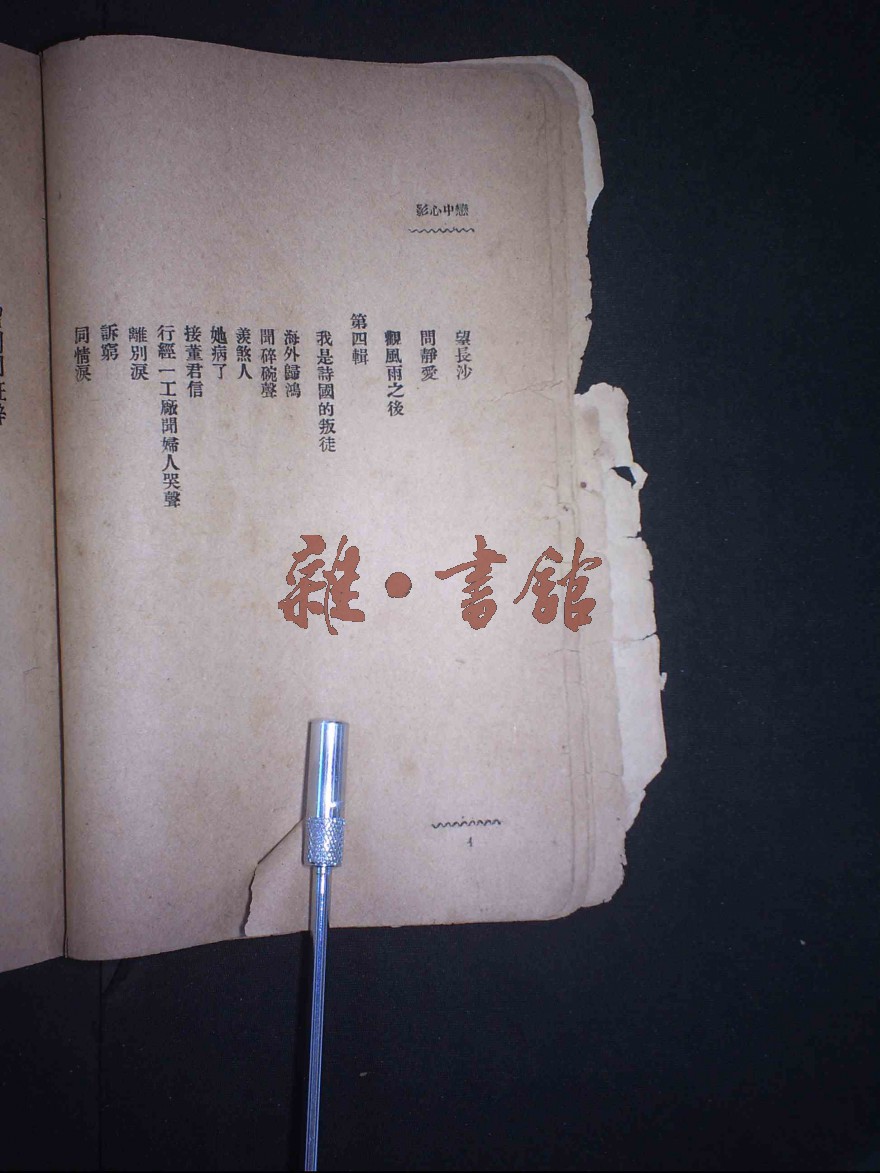 影心中戀
望長沙
問靜愛
觀風雨之後
第四輯
我是詩國的叛徒
海外歸鴻
聞碎碗聲
羨煞人
她病了
接董君信
行經一工廠聞婦人哭聲
離別淚
訴窮
同情淚
雜·書館